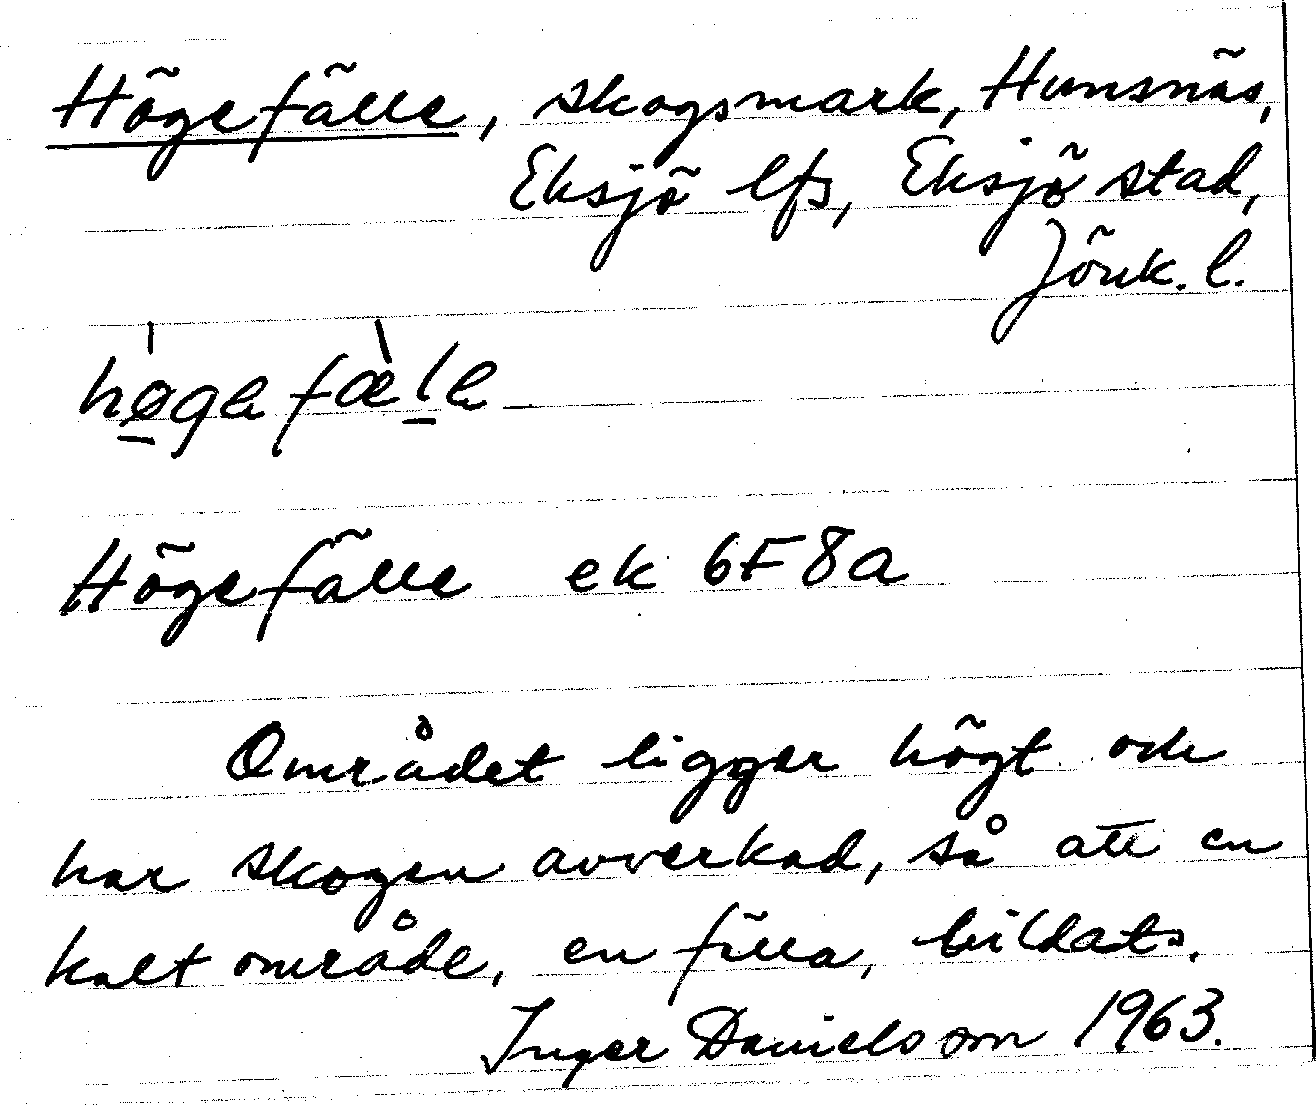 Högefälle, skogsmark, Hunsnäs,
Eksjö lfs, Eksjö stad,
Jönk. l.
høgefæle
Högefälle ek 6F8a
Området ligger högt och
har skogen avverkad, så att en
kalt område, en fälla, bildats.
Inger Danielsson 1963.